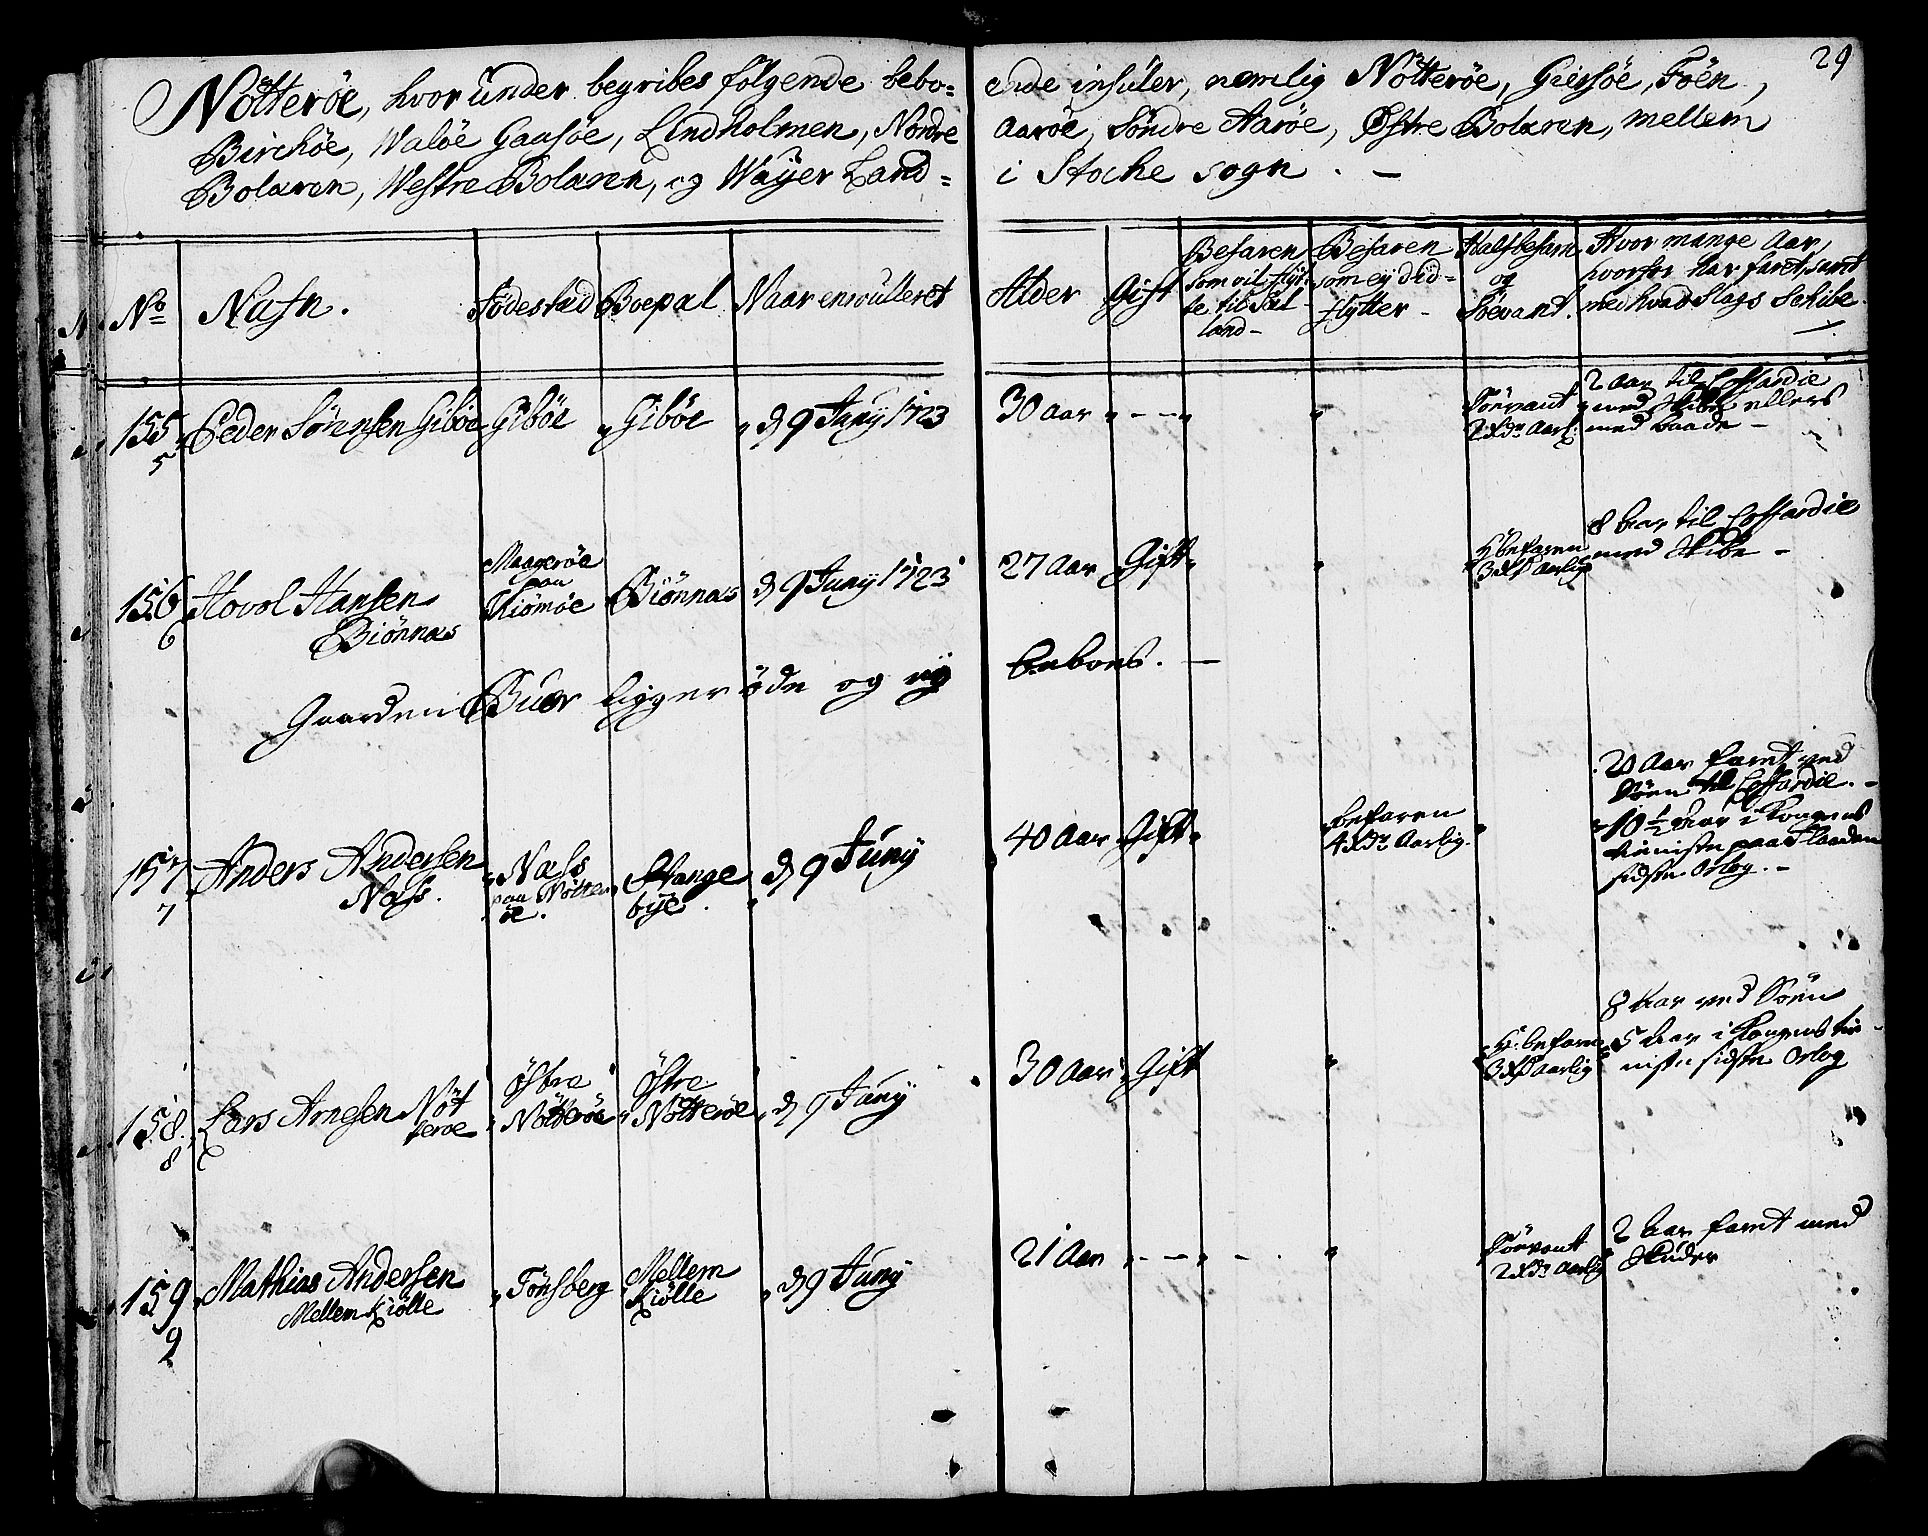 29
Nötteröe, hvor under begribes fölgende bebo= ende insuler, nemlig Nötteröe, Giersöe, Foën,
Birchöe, Walöe Gaasöe, Lindholmen, Nordre Aaröe, Söndre Aaröe, Østre Bolæren, mellem
Bolæren, Westre Bolæren, og Wayer Land= i Stocke sogn. -
No Nafn. Födestæd Boepæl Naar enroulleret Alder Gift Befaren som vil flÿt te til Siæl land- Befaren som ej did= flytter - Halfbefarn og Söevant. Hvor mange Aar, hvorfra har faret, samt med hvad Slags Schibe
155 Peder Sörensen Giböe Giböe Giböe d 9 Junÿ 1723 30 aar Söevant 2 xdr Aarl: 2 aar til Coffardie
5 med Skibe ellers
med baade -
156 Hovol Hansen Maageröe paa Kiömöe Biönnæs d 9 Junÿ 1723 27 aar Gift H befaren 3 xd Aarlig 8 Aar til Coffardie
6 Biönnæs med Skibe -
Gaarden Buer ligger öde og eÿ beboes. -
157 Anders Andersen Næss paa Nötter öe. Stange bÿe d 9 Junÿ 40 aar Gift befaren 4 xdr Aarlig. 20 Aar faret ved
7 Næss. Söen til Coffardie. -
10 1/2 Aar i Kongens
tieniste paa Flaaden
sidste Orlog. -
158 Lars Arnesen Nöt teröe Östre Nötteröe Östre Nötteröe d 9 Junÿ 30 aar Gift H. befarn 3 xd aarlig 8 Aar ved Söen
8 5 Aar i Kongens tie-
niste sidste Orlog
159 Mathias Andersen Tönsberg Mellem Kiölle d 9 Junÿ 21 Aar Söevant 2 xdr aarlig 2 Aar faret med
9 Mellem Kiölle Skuder